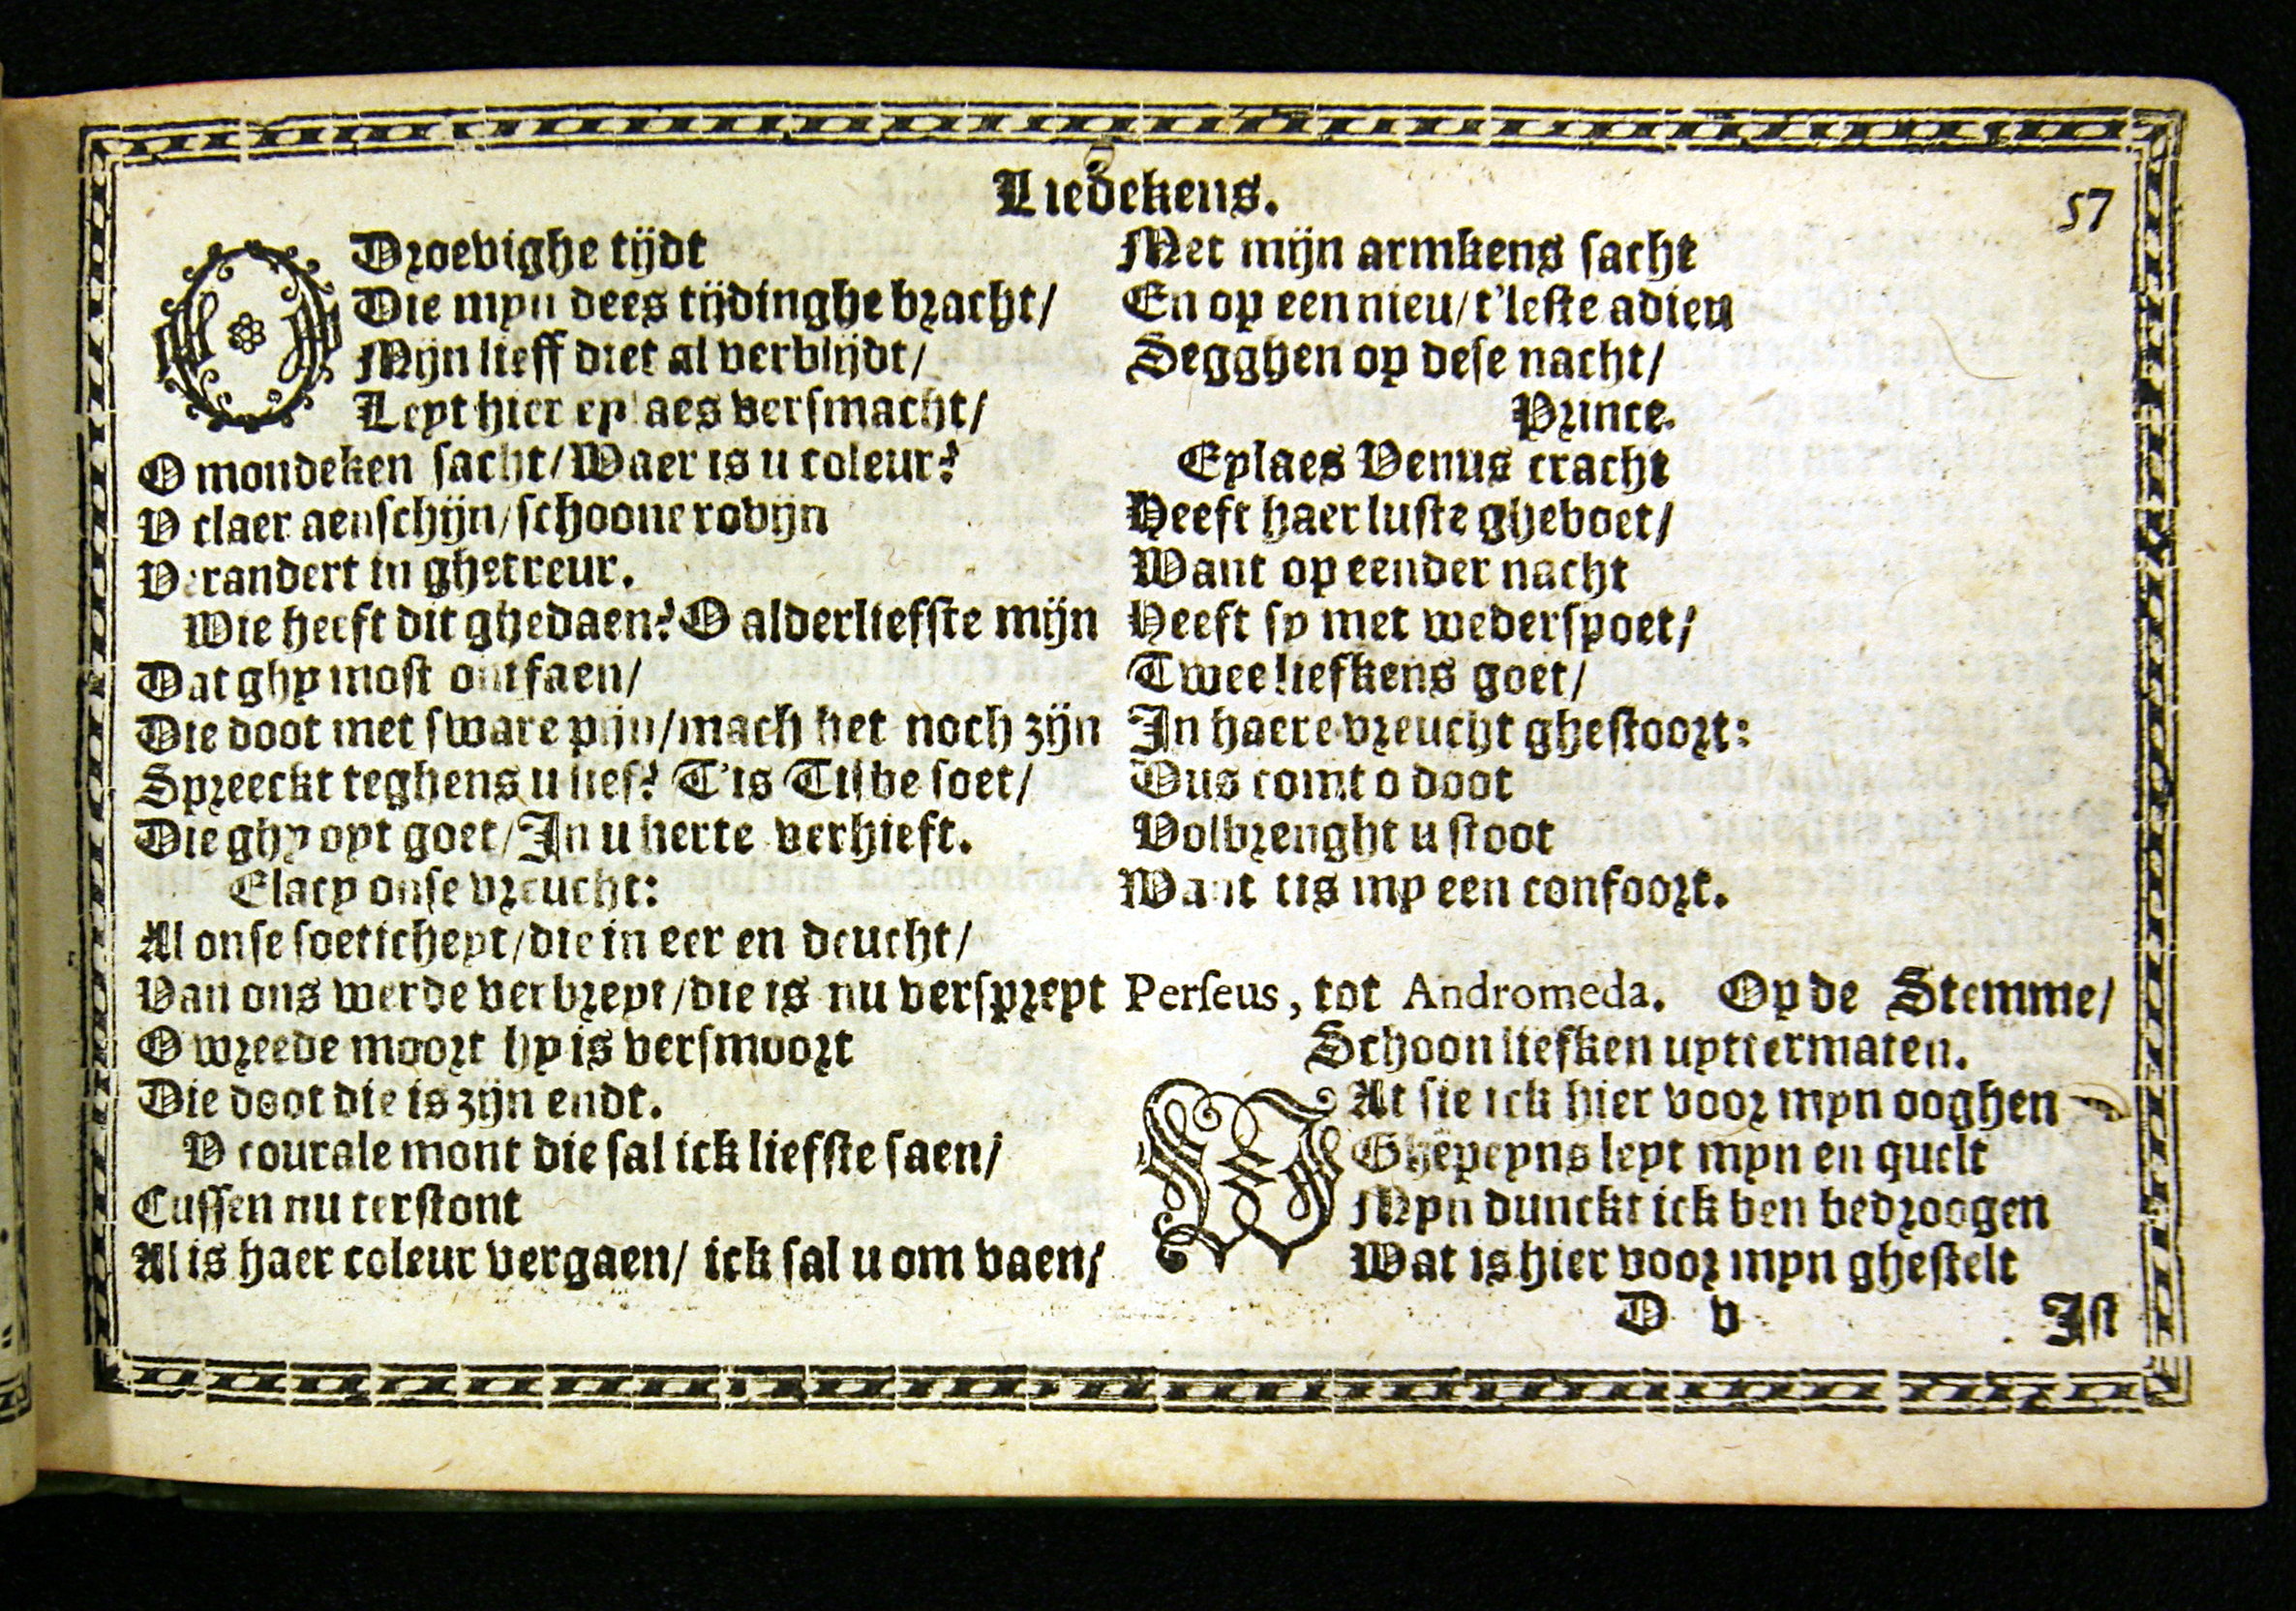 Liedekens.
57
O Droevighe tijdt
Die myn dees tijdinghe bracht/
Mijn lieff diet al verblijdt/
Leyt hier eylaes versmacht/
O mondeken sacht/Waer is u coleur?
V claer aenschijn/schoone robijn
Verandert in ghetreur.
Wie heeft dit ghedaen? O alderliefste mijn
Dat ghy most ontfaen/
Die doot met sware pijn/mach het noch zijn
Spreeckt teghens u lief? T'is Tisbe soet/
Die ghy oyt goet/In u herte verhieft.
Elacy onse vreucht:
Al onse soeticheyt/die in eer en deucht/
Van ons werde verbreyt/die is nu verspreyt
O wreede moort hy is versmoort
Die doot die is zijn endt.
V courale mont die sal ick liefste saen/
Cussen nu terstont
Al is haer coleur vergaen/ ick sal u om vaen/
Met mijn armkens sacht
En op een nieu/t'leste adieu
Segghen op dese nacht/
Prince.
Eylaes Venus cracht
Heeft haer luste gheboet/
Want op eender nacht
Heeft sy met wederspoet/
Twee liefkens goet/
In haere vreucht ghestoort:
Dus comt o doot
Volbrenght u stoot
Want tis my een confoort.
Perseus, tot Andromeda. Op de Stemme/
Schoon liefken uyttermaten.
WAt sie ick hier voor myn ooghen
Ghepeyns leyt myn en quelt
Myn dunckt ick ben bedroogen
Wat is hier voor myn ghestelt
D v
Ist